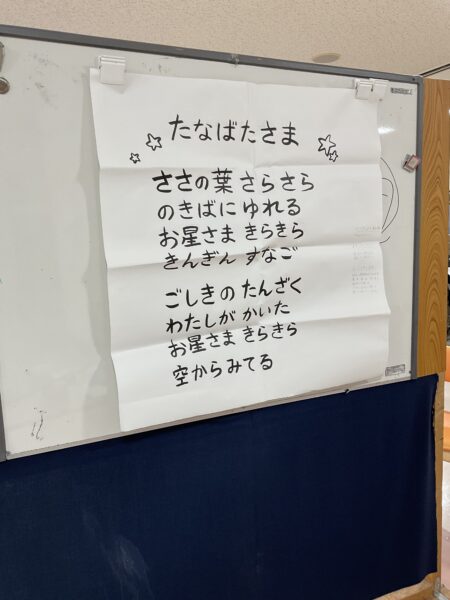 たなばたさま
ささの葉 さらさら
のきばに ゆれる
お星さま きらきら
きんぎん すなご
ごしきの たんざく
わたしが かいた
お星さま きらきら
空からみてる